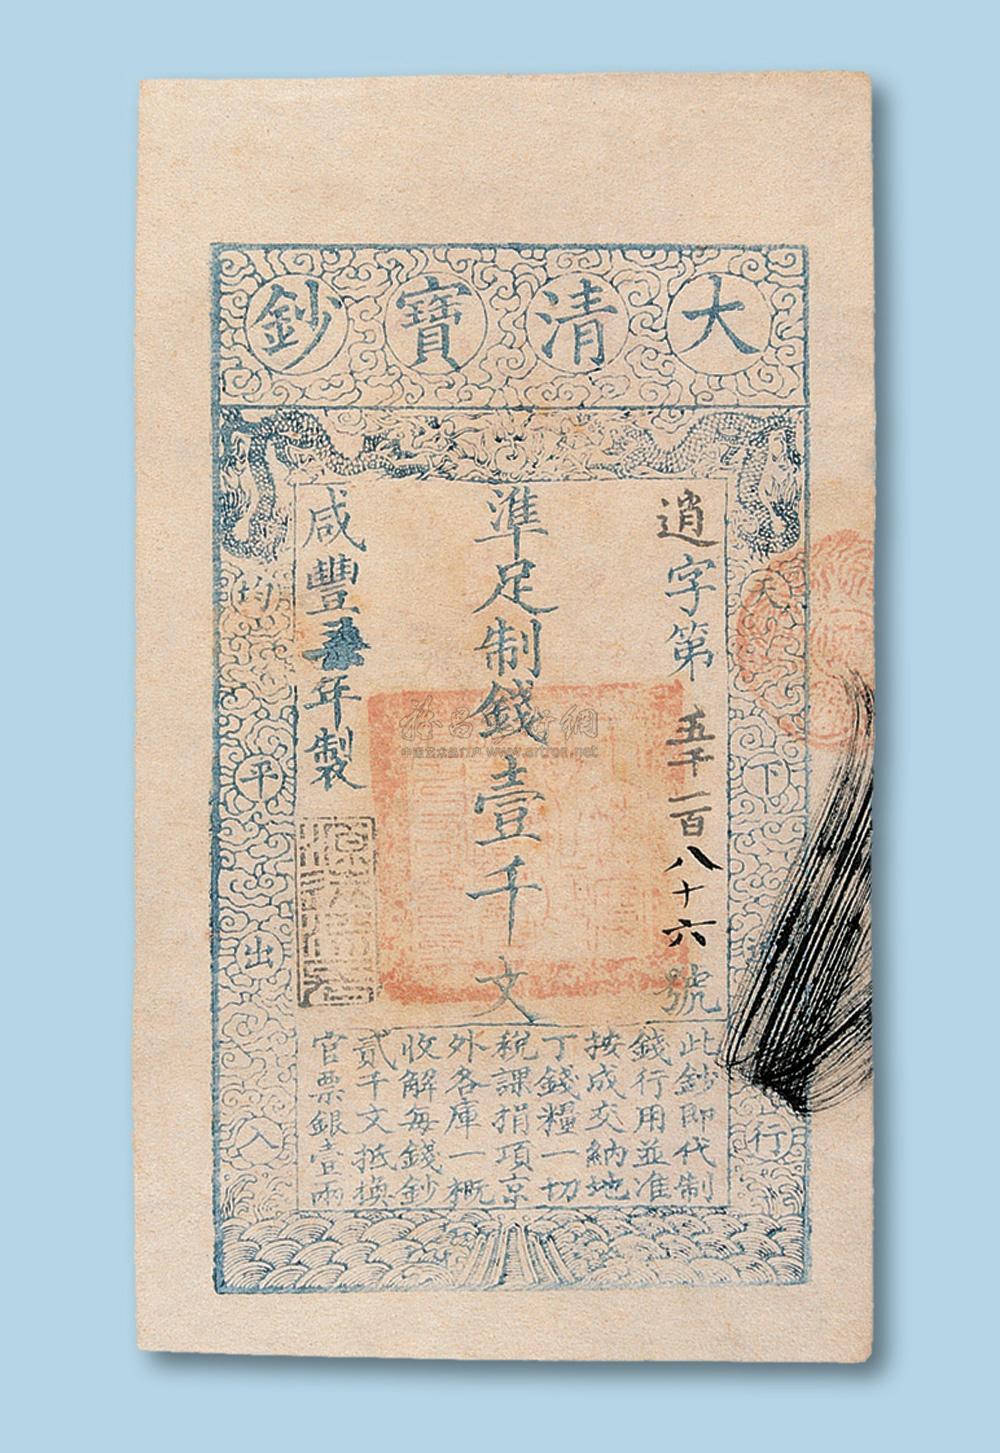 大清寶鈔
天下通行
均平出入
逍字第五千一百八十六號
準足制錢壹千文
咸豐五年製
此鈔即代制
錢行用並准
按成交納地
丁錢糧一切
稅課捐項京
外各庫一概
收解每錢鈔
貳千文抵換
官票銀壹兩
www.artron.net